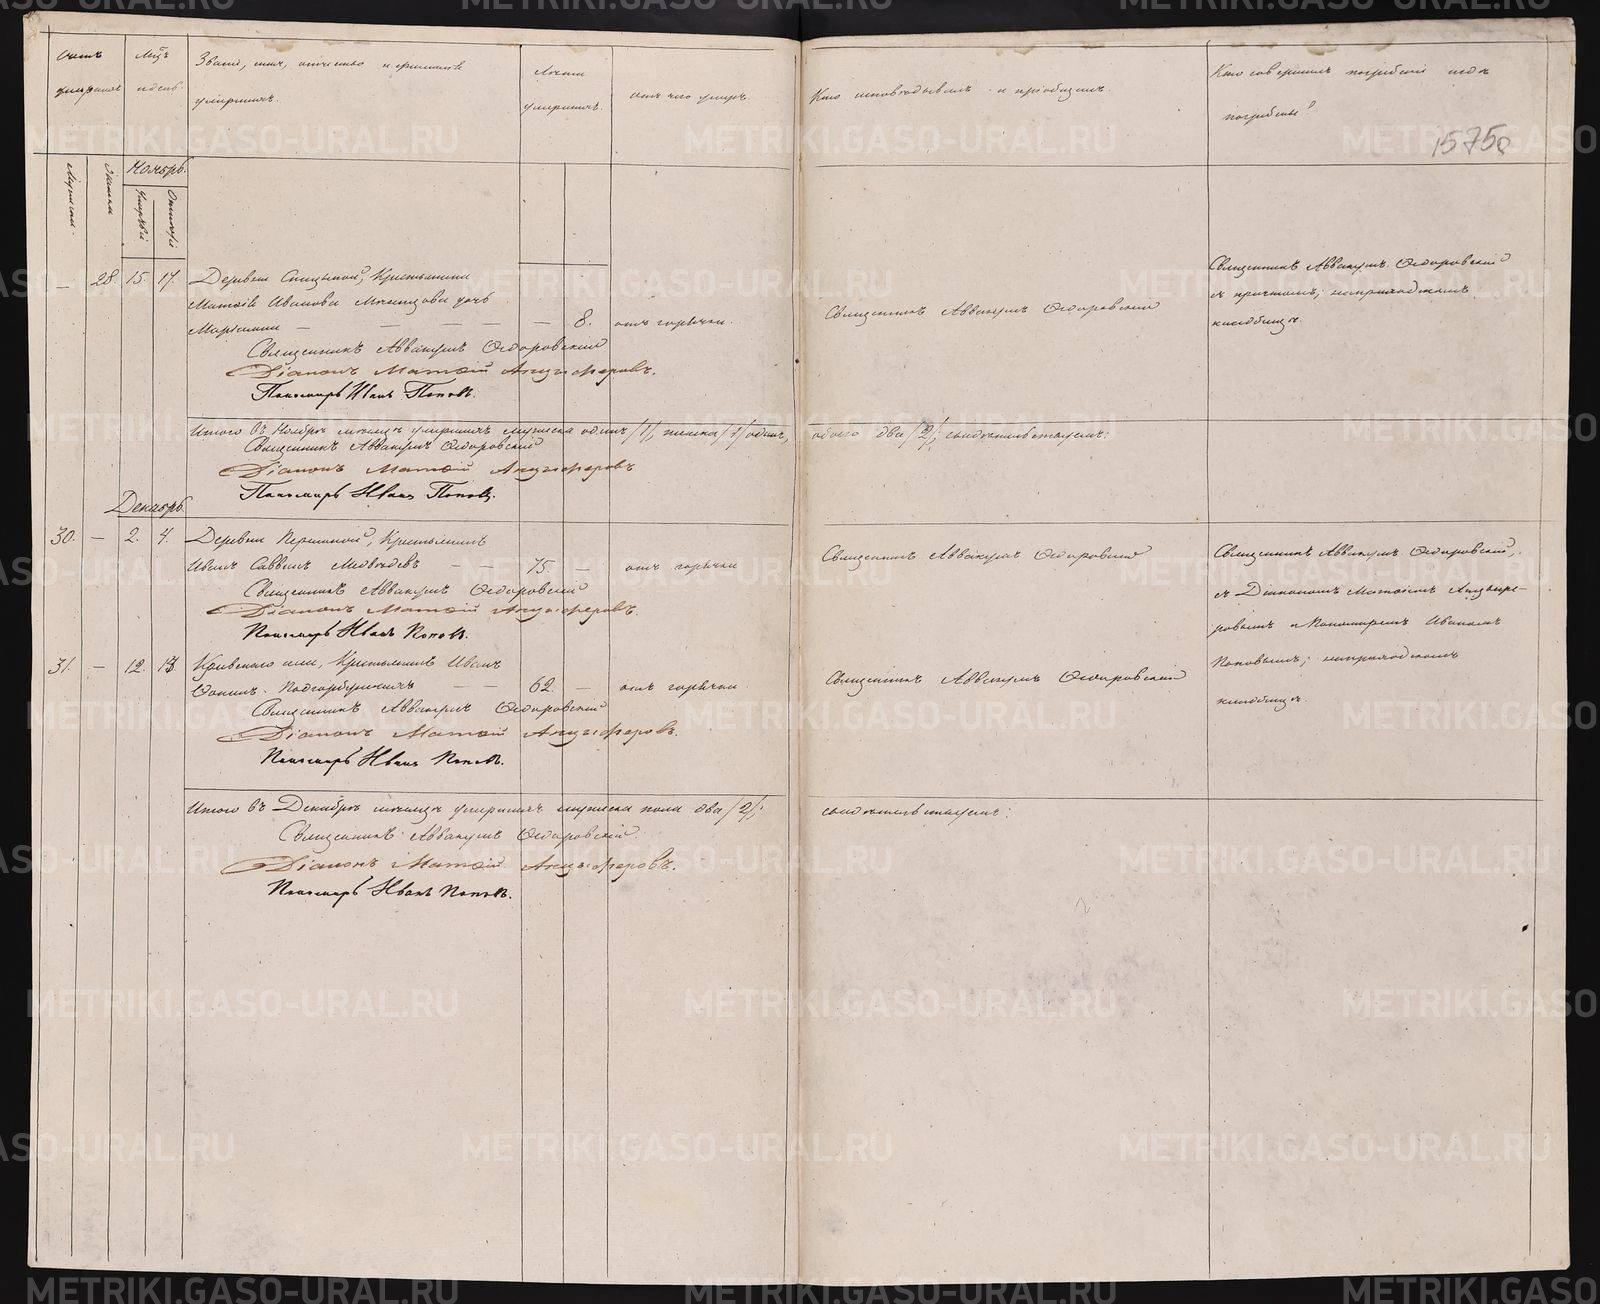 Счетъ умершихъ
Мѣсяцъ и день
Званіе, имя, отчество и фамилія умершихъ.
Лѣта умершихъ.
отъ чего умеръ.
Кто исповѣдывалъ и пріобщалъ.
Кто совершалъ погребеніе и гдѣ погребены?
1575
Мужеска.
Женска
Ноябрь.
Умертвія
Отпѣтія
— 28. 15. 17. Деревни Крестьянина
Матѳія Иванова дочь
— — — — — 8. отъ горячки.
Священникъ Аввакумъ Ѳедоровскій
Священникъ Аввакумъ Ѳедоровскій
съ причтомъ; на приходскомъ
кладбищѣ.
Священникъ Аввакумъ Ѳедоровскій
Діаконъ Матѳій Анцыферовъ.
Пономарь Иванъ Поповъ.
Итого въ Ноябрѣ мѣсяцѣ умершихъ мужеска одинъ /1/, женска /1/ одинъ, обоего два /2/; свидѣтельствуемъ:
Священникъ Аввакумъ Ѳедоровскій
Діаконъ Матѳій Анцыферовъ
Пономарь Иванъ Поповъ.
Декабрь
30. — 2. 4. Деревни Крестьянинъ
Иванъ Саввинъ Медвѣдевъ — — 75. — отъ горячки
Священникъ Аввакумъ Ѳедоровскій
Священникъ Аввакумъ Ѳедоровскій,
съ Діакономъ Матѳіемъ Анцыфе-
ровымъ и Пономаремъ Иваномъ
Поповымъ; на приходскомъ
кладбищѣ.
Священникъ Аввакумъ Ѳедоровскій
Діаконъ Матѳій Анцыферовъ.
Пономарь Иванъ Поповъ.
31. — 12. 13. села, Крестьянинъ Иванъ
Ѳоминъ — — 62. — отъ горячки.
Священникъ Аввакумъ Ѳедоровскій
Священникъ Аввакумъ Ѳедоровскій
Діаконъ Матѳій Анцыферовъ.
Пономарь Иванъ Поповъ.
Итого въ Декабрѣ мѣсяцѣ умершихъ мужеска пола два /2/; свидѣтельствуемъ:
Священникъ Аввакумъ Ѳедоровскій.
Діаконъ Матѳій Анцыферовъ.
Пономарь Иванъ Поповъ.
METRIKI.GASO-URAL.RU